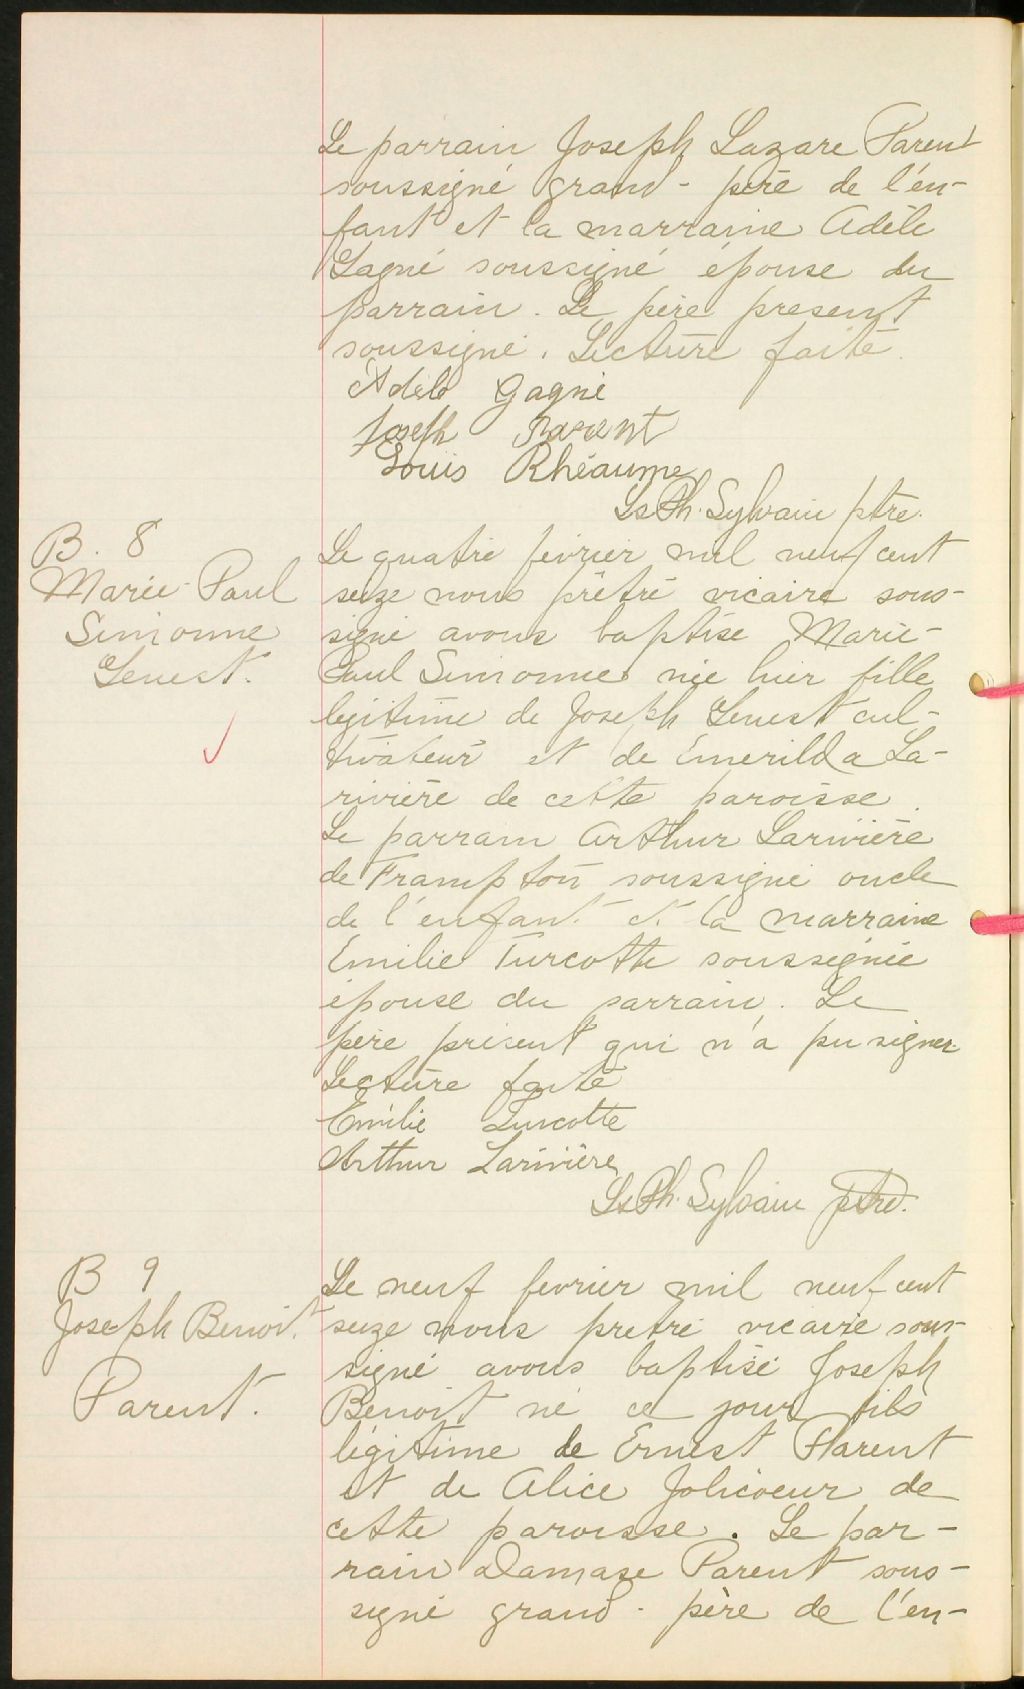 Le parrain Joseph Lazare Parent
soussigné grand-père de l'en-
fant et la marraine Adèle
Gagné soussigné épouse du
parrain. Le père present
soussigné. Lecture faite.
Adèle Gagné
Joseph Parent
Louis Rhéaume
Ls Ph. Sylvain ptre.
B. 8
Marie-Paul
Simonne
Genest.
Le quatre février mil neuf cent
seize nous prêtre vicaire sous-
signé avons baptisé Marie-
Paul Simonne née hier fille
legitime de Joseph Genest cul-
tivateur et de Emerilda La-
rivière de cette paroisse.
Le parrain Arthur Larivière
de Frampton soussigné oncle
de l'enfant et la marraine
Emilie Turcotte soussignée
épouse du parrain. Le
père présent qui n'a pu signer
Lecture faite
Emilie Turcotte
Arthur Larivière
Ls Ph. Sylvain ptre.
B 9
Joseph Benoit.
Parent.
Le neuf fevrier mil neuf cent
seize nous pretre vicaire sous-
signé avons baptisé Joseph
Benoit né ce jour fils
légitime de Ernest Parent
et de Alice Jolicoeur de
cette paroisse. Le par-
rain Damase Parent sous-
signé grand-père de l'en-